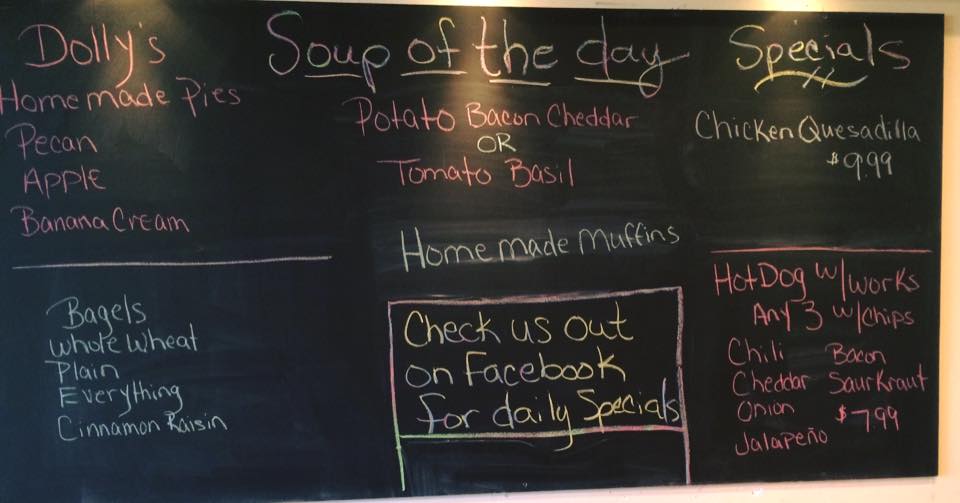 Dolly's
Homemade Pies
Pecan
Apple
Banana Cream
Bagels
Whole Wheat
Plain
Everything
Cinnamon Raisin
Soup of the day
Potato Bacon Cheddar
OR
Tomato Basil
Homemade Muffins
Check us out
on Facebook
for daily Specials
Specials
Chicken Quesadilla
$9.99
Hot Dog w/works
Any 3 w/chips
Chili Bacon
Cheddar Saurkraut
Onion $7.99
Jalapeño